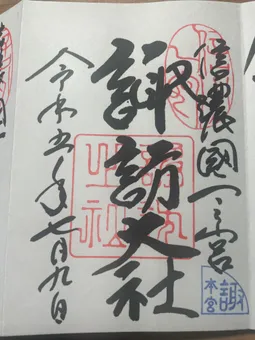 信濃國一之宮
諏訪大社
令和五年七月九日
諏訪
大社
諏
本宮